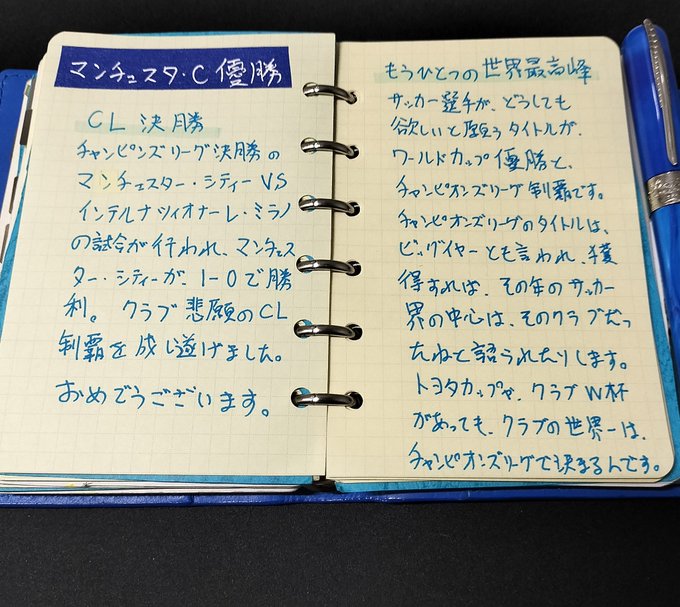 マンチェスタ・C 優勝
CL 決勝
チャンピンズリーグ決勝の
マンチェスター・シティー VS
インテルナツィオナーレ・ミラノ
の試合が行われ、マンチェス
ター・シティーが、1-0で勝
利。クラブ悲願のCL
制覇を成し遂げました。
おめでうございます。
もうひとつの世界最高峰
サッカー選手が、どうしても
欲しいと願うタイトルが、
ワールドカップ優勝と、
チャンピオンズリーグ制覇です。
チャンピオンズリーグのタイトルは、
ビッグイヤーとも言われ、獲
得すれば、その年のサッカー
界の中心は、そのクラブだっ
たねと語られたりします。
トヨタカップや、クラブW杯
があっても、クラブの世界一は、
チャンピオンズリーグで決まるんです。